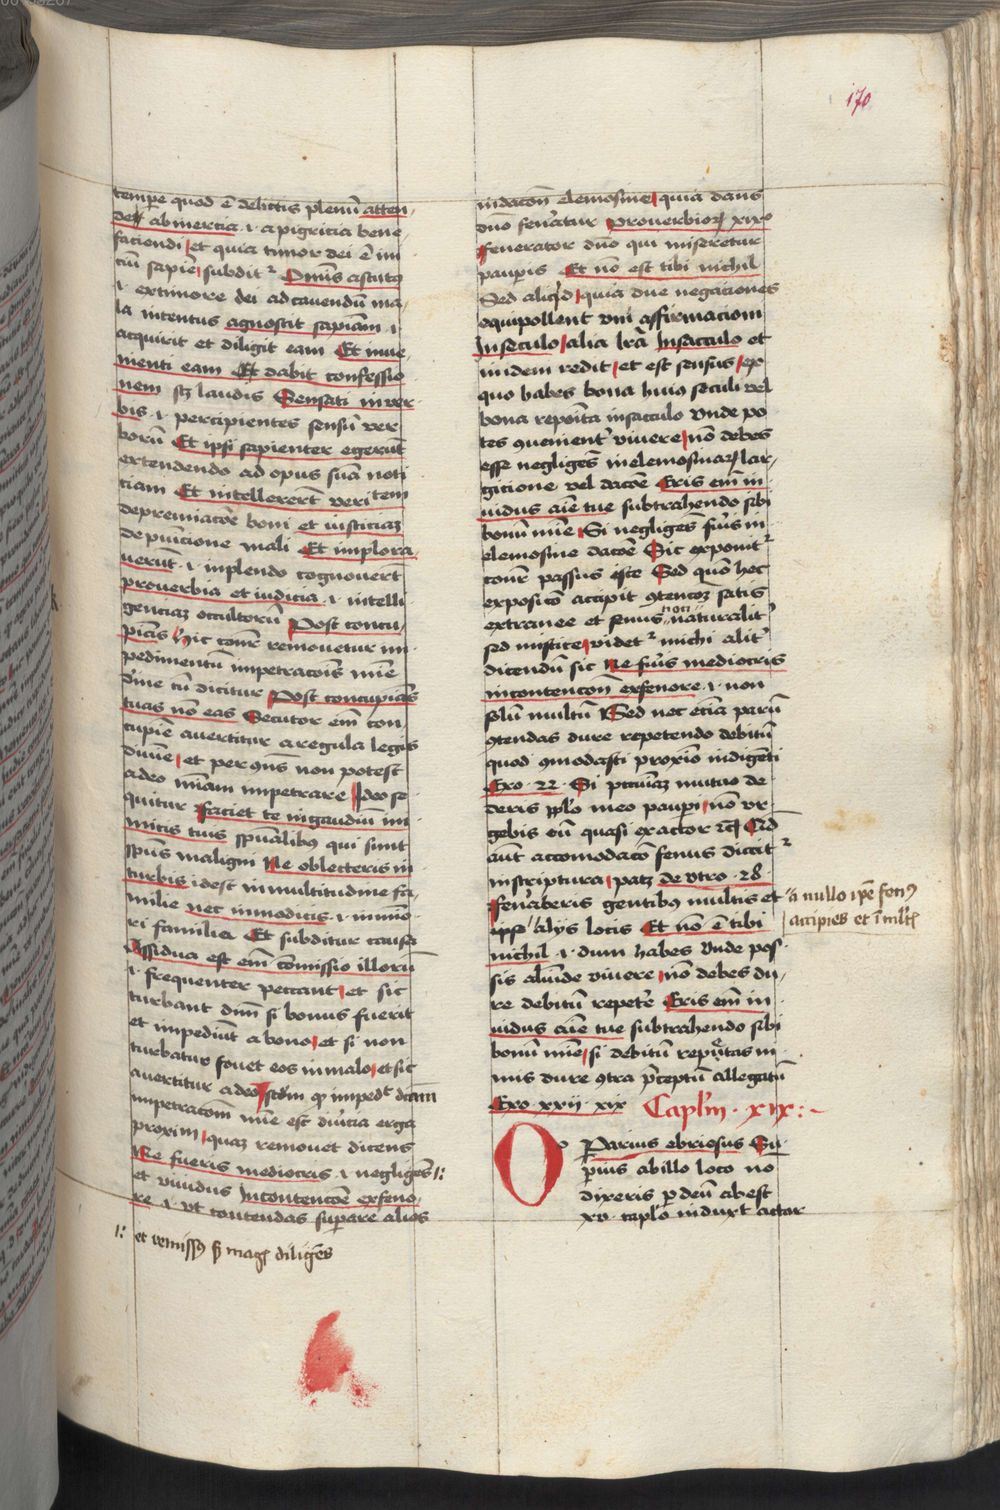 170
tempere quod ē delictis plenū atten
de ab inercia .i. a pigricia bene
faciendi et quia timor dei ē ini
ciū sapiē subditr Omnis astutꝯ
.i. ex timore dei ad cavendū ma
la intentus agnoscit sapiām .i.
acquirit et diligit eam Et inue
nienti eam Et dabit confessio
nem sꝫ laudis Sensati in ver
bis .i. percipientes sensū ver
borū Et ipsi sapienter egerūt
extendendo ad opus suā noti
ciam Et intellexert veritem
de premiacōe boni et iusticiaꝫ
de punicione mali Et implora
uerūt .i. inplendo cognouert
proverbia et iudicia .i. intelli
genciaꝫ occultorū Post concu
piās hic conr̄ remouetur im
pedimentū impetracōis mīe
dīne cū dicitur Post concupiās
tuas nō eas Secutor em̄ con
cupiē auertitur a regula legis
diuine et per ꝯns non potest
a deo mīam impetrare Ideo se
quitur faciet te in gaudiū ini
micis tuis spūalibꝯ qui sunt
spūs maligni Ne oblecteris in
turbis idest in multitudine fa
milie nec in modicis .i. in mīo
ri familia Et subditur causa
Assidua est em̄ cōmissio illorū
.i. frequenter peccant et sic
turbant dnm̄ si bonus fuerit
et impediūt a bono et si non
turbatur fouet eos in malo et sic
auertitur a deo scdm̄ qꝫ impedt dcam
impetracom̄ mīe est diuicia erga
proxim̄ quaꝫ remouet dicens
Ne fueris mediocris .i. negligēs
et viuidus In contencōe ex feno
re .i. vt contendas superare alios
et remissꝯ sꝫ magꝭ diligēs
in dacōn elemosine quia dans
dn̄o feneratur Proverbioꝝ xixo
fenerator dn̄o qui miseretur
pauperis Et nō est tibi nichil
Sed aliqd quia due negaciones
equipollent vni affirmacioni
In seculo alia lr̄a In sacculo et
in idem redit et est sensus ex
quo habes bona huiꝯ seculi vel
bona reposita in sacculo vnde po
tes ꝯuenientr viuere nō debes
esse negligēs in elemosinaꝝ lar
gicione vel dacōe Eris em̄ in
uidus aīe tue subtrahendo sibi
bonū mīe Si negligēs fuīs in
elemosine dacōe Sic exponitr
conr̄ passus iste Sed quō hec
exposicō accipit ꝯtencoꝫ satis
extranee et fenus non naturalitr
sed mistice videtr michi alitr
dicendū sic Ne fuīs mediocris
in contencōn ex fenore .i. non
solū multū Sed nec eciā parū
ꝯtendas dure repetendo debitū
quod ꝯmodasti proxīo indigēti
Exo .22. Si pecuniaꝫ mutuo de
deris pplo meo pauperi nō vr
gebis eū quasi exactor
aūt accomodacō fenus dicitr
in scriptura patꝫ deutro .28.
feneraberis gentibꝯ multis et
ipse alijs locis Et nō ē tibi
a nullo ipe fenꝯ
accipies et ī mltꝭ
nichil .i. dum habes vnde pos
sis aliunde viuere nō debes du
re debitū repetē Eris em̄ in
uidus aīe tue subtrahendo sibi
bonū mīe si debitū reputas ni
mis dure ꝯtra p̄ceptū allegatū
Exo xxij xix Caplm . xix :~
Operarius ebriosus Su
perius ab illo loco no
dixeris p deū abest
xv caplo induxt actor